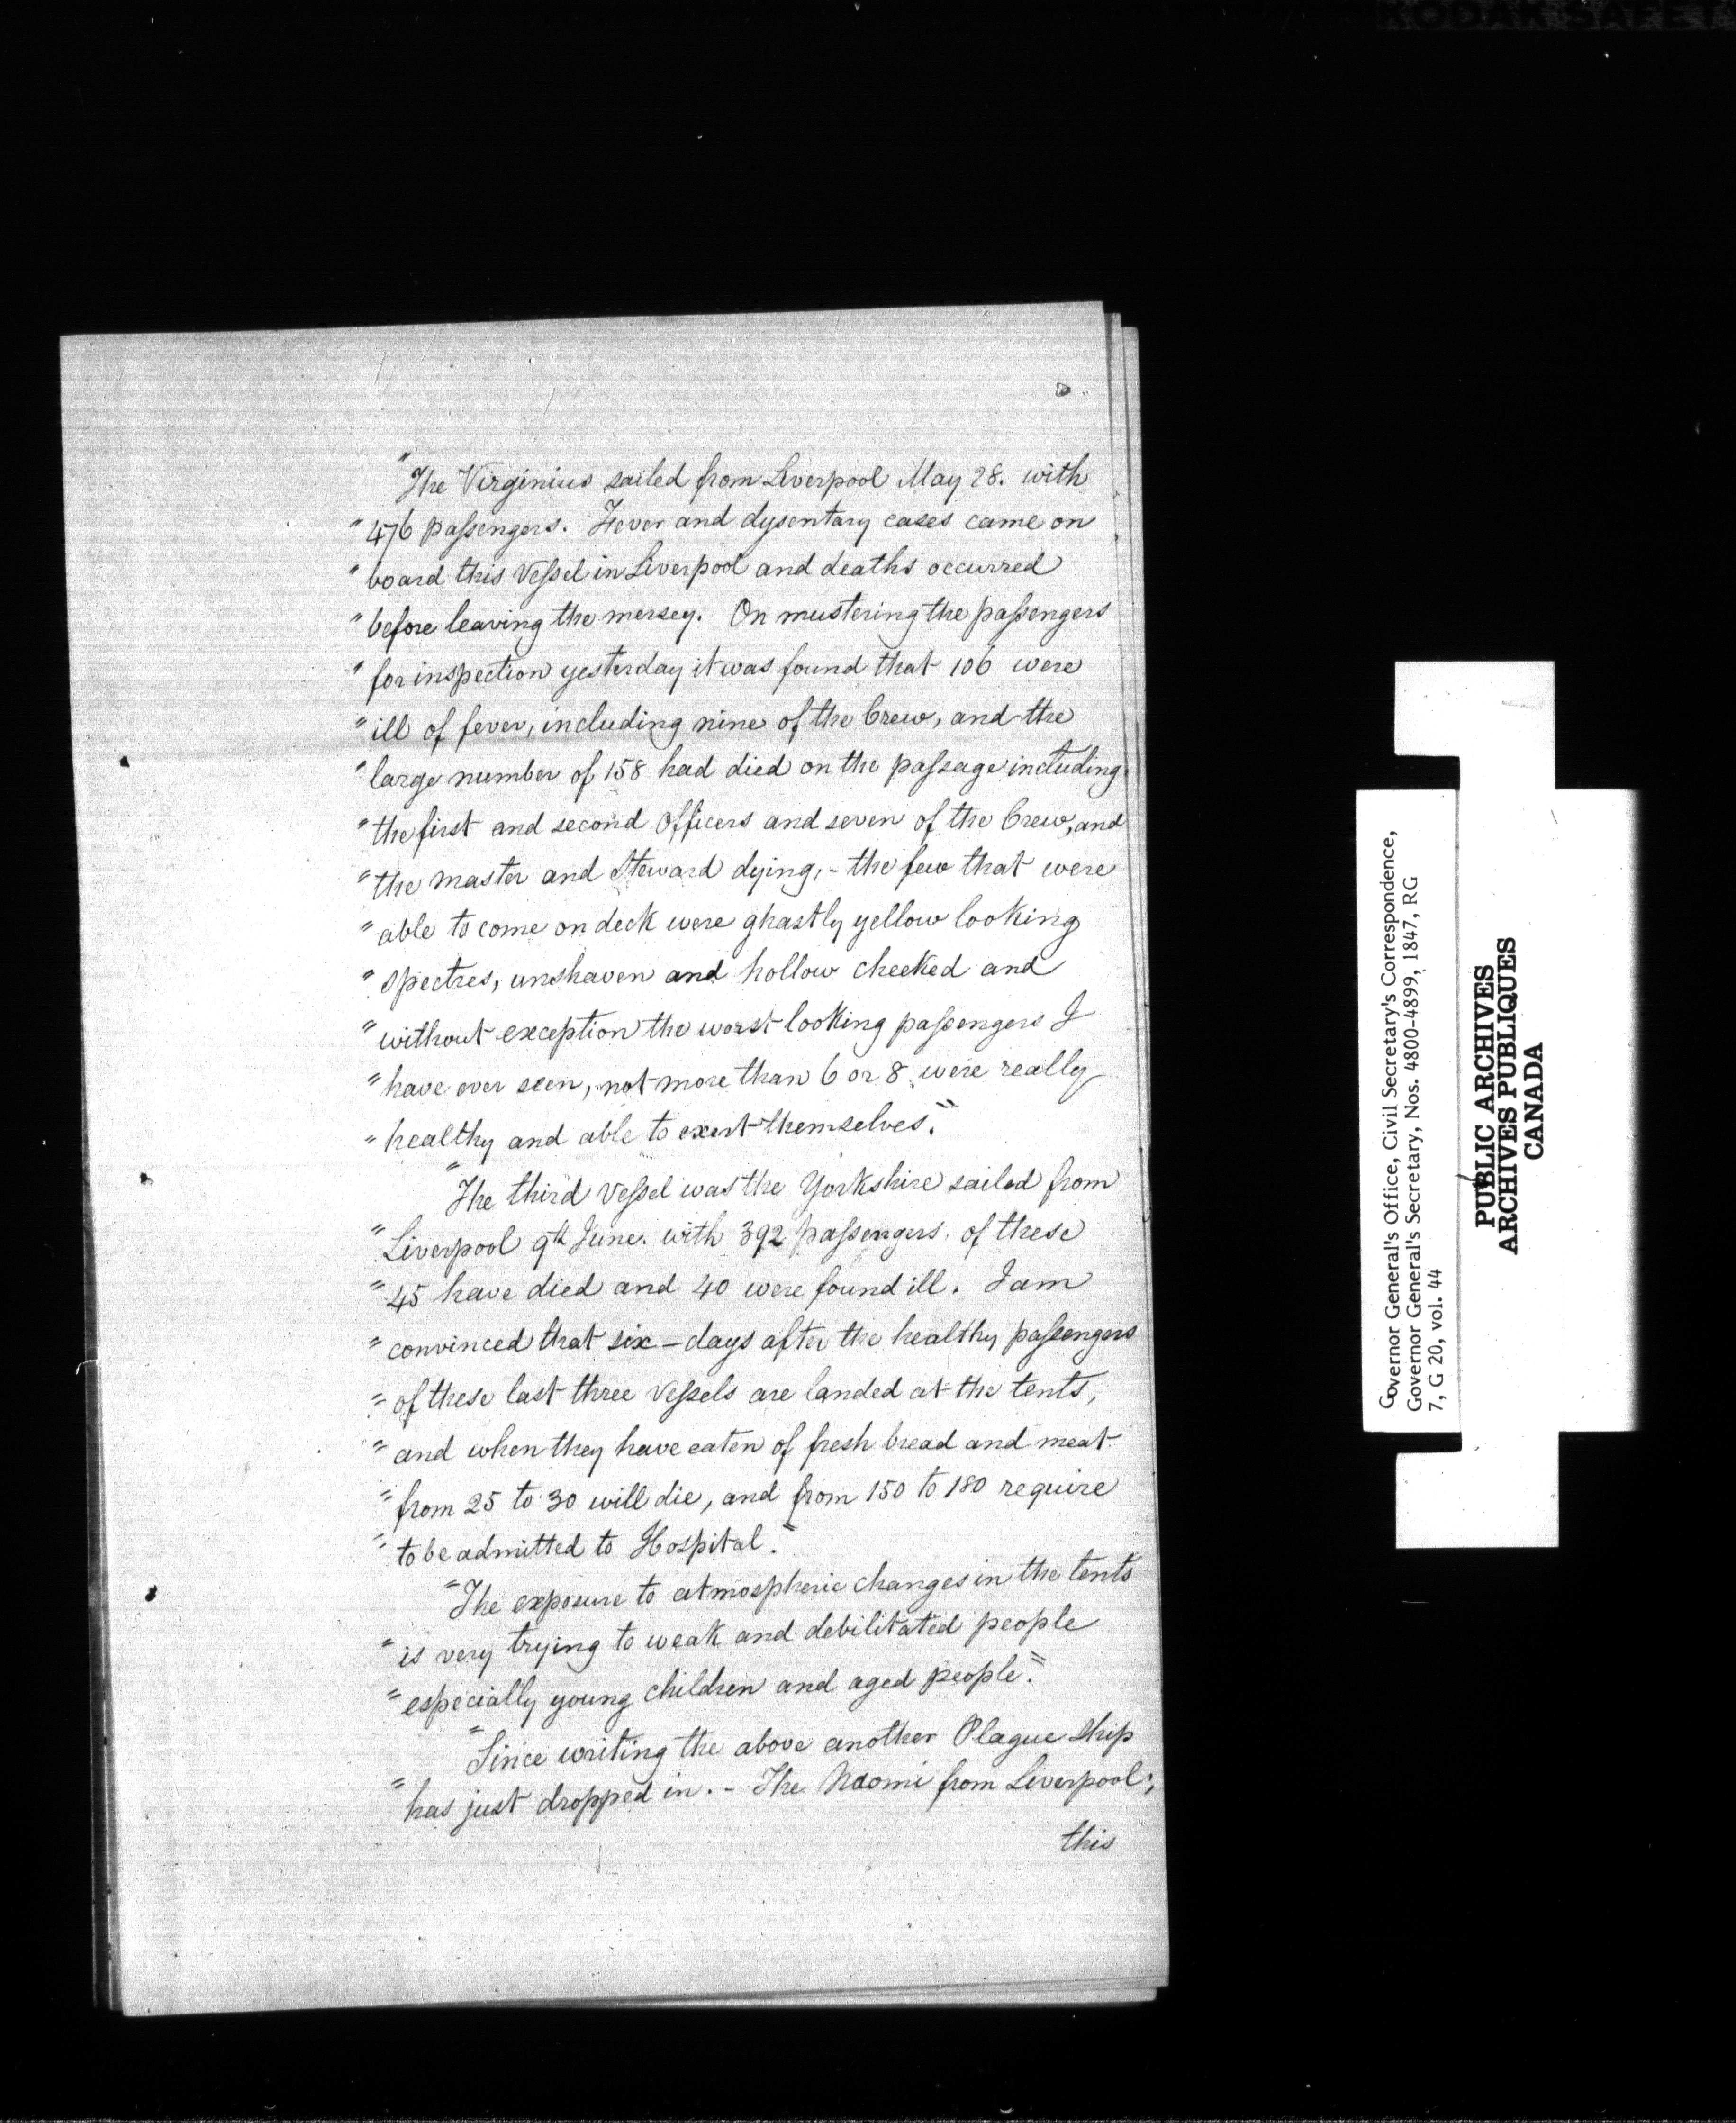 "The Virginius sailed from Liverpool May 28. with
" 476 passengers. Fever and dysentary cases came on
" board this Vessel in Liverpool and deaths occurred
" before leaving the mersey. On mustering the passengers
" for inspection yesterday it was found that 106 were
" ill of fever, including nine of the Crew, and the
" large number of 158 had died on the passage including
" the first and second Officers and seven of the Crew, and
" the master and Steward dying, - the few that were
" able to come on deck were ghastly yellow looking
" spectres, unshaven and hollow cheeked and
" without exception the worst looking passengers I
" have ever seen, not more than 6 or 8 were really
" healthy and able to exert themselves."
"The third Vessel was the Yorkshire sailed from
" Liverpool 9th June. with 392 passengers. of these
" 45 have died and 40 were found ill. I am
" convinced that six - days after the healthy passengers
" of these last three Vessels are landed at the tents,
" and when they have eaten of fresh bread and meat
" from 25 to 30 will die, and from 150 to 180 require
" to be admitted to Hospital."
"The exposure to atmospheric changes in the tents
" is very trying to weak and debilitated people
" especially young children and aged people."
"Since writing the above another Plague Ship
" has just dropped in. - The Naomi from Liverpool;
this
Governor General's Office, Civil Secretary's Correspondence,
Governor General's Secretary, Nos. 4800-4899, 1847, RG
7, G 20, vol. 44
PUBLIC ARCHIVES
ARCHIVES PUBLIQUES
CANADA
KODAK SAFET